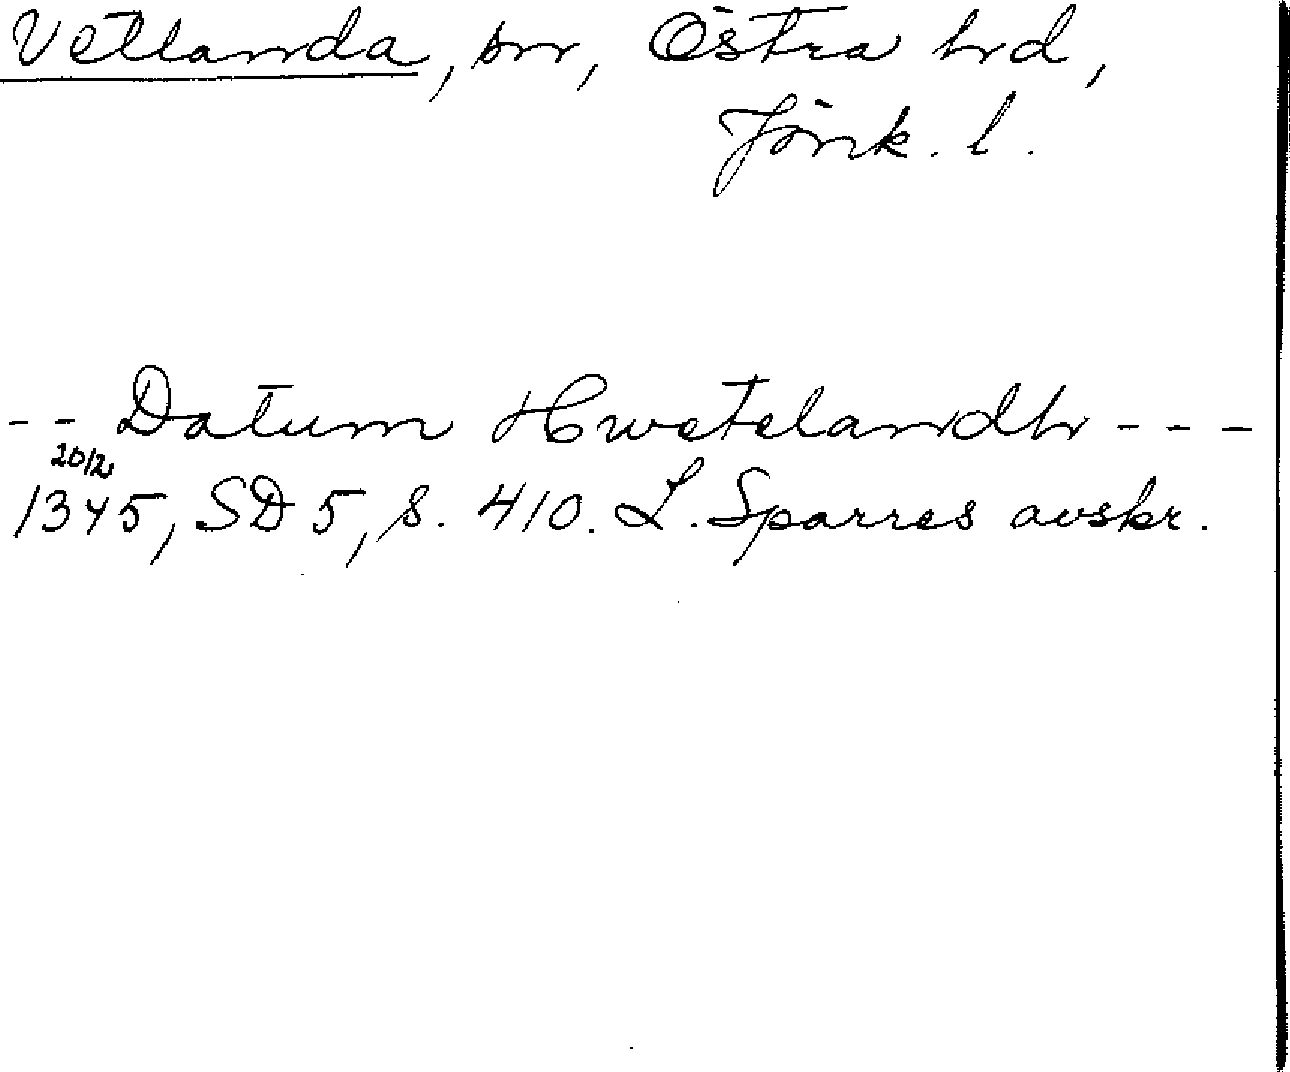 Vetlanda, snr, Östra hrd,
Jönk. l.
-- Datum Hwetelandh ---
20/2
1345, SD 5, s. 410. L. Sparres avskr.